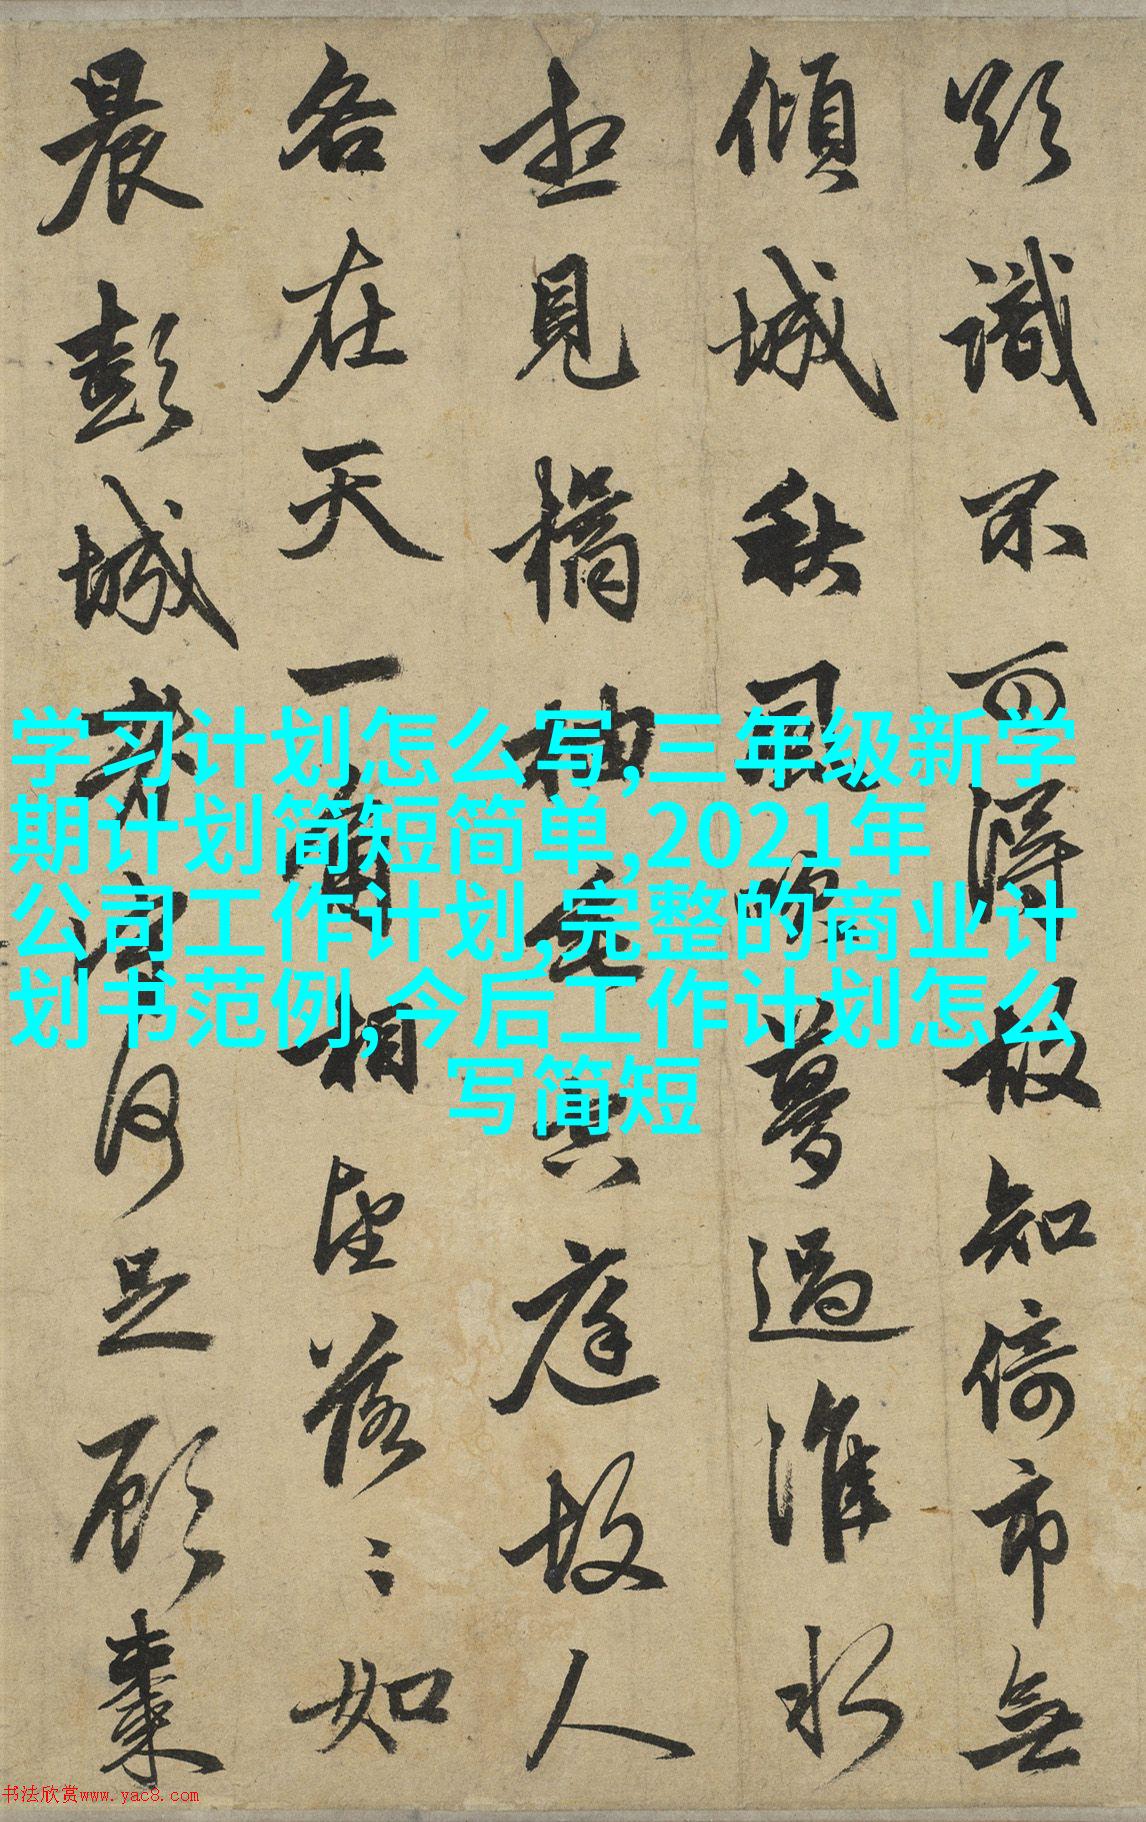 欲識不可得故知倚市無
傾城秋風吹夢過淮水
想見橘柚垂空庭故人
各在天一角相望落〻如
晨彭城老守何足顧棗
学习计划怎么写,三年级新学
期计划简短简单,2021年
公司工作计划,完整的商业计
划书范例,今后工作计划怎么
写简短
书法欣赏www.yac8.com